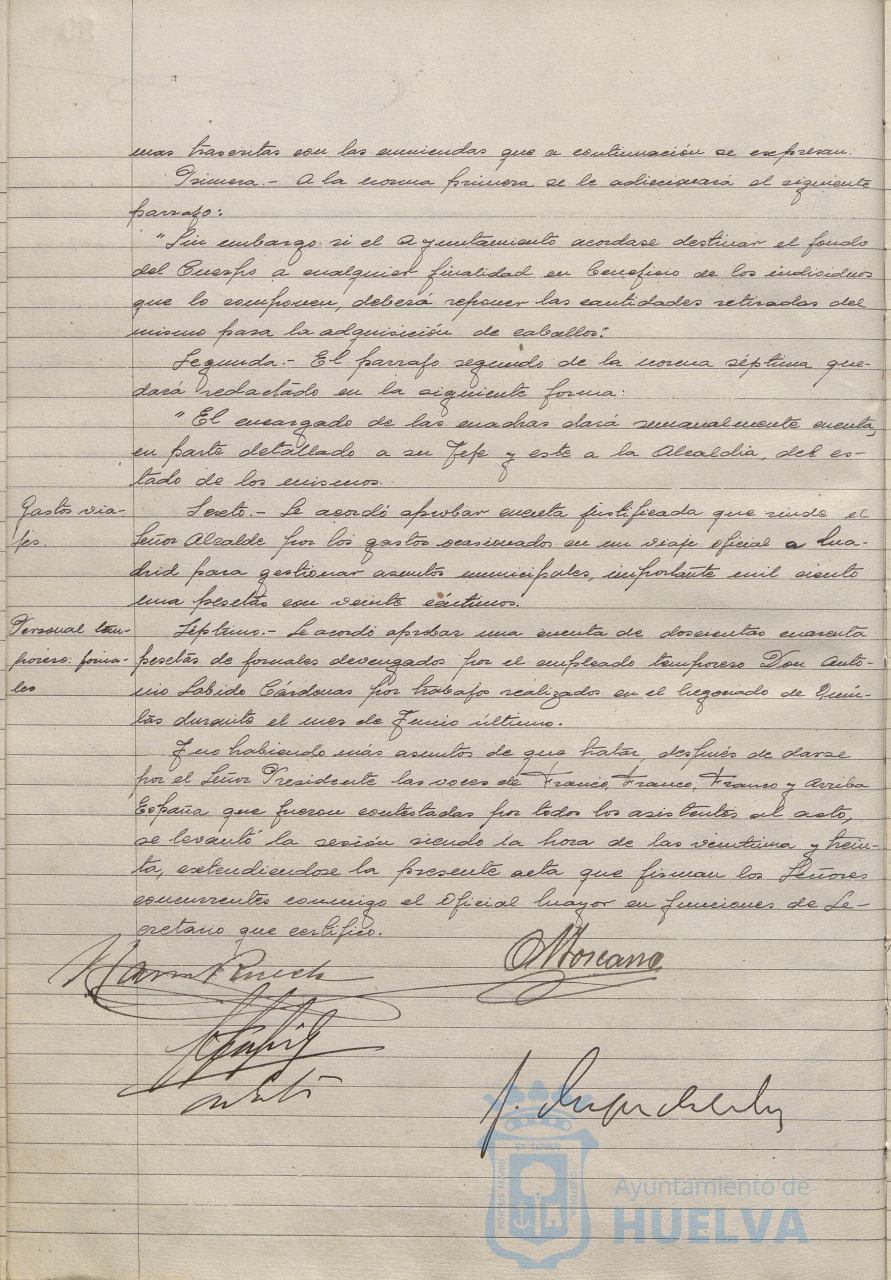 mas trascritas con las enmiendas que a continuación se expresan:
Primera.- A la norma primera se le adicionará el siguiente
parrafo:
"Sin embargo si el Ayuntamiento acordase destinar el fondo
del Cuerpo a cualquier finalidad en beneficio de los individuos
que lo componen, deberá reponer las cantidades retiradas del
mismo para la adquisición de caballos."
Segunda.- El parrafo segundo de la norma séptima que-
dará redactado en la siguiente forma:
"El encargado de las cuadras dará semanalmente cuenta,
en parte detallado a su Jefe y este a la Alcaldia, del es-
tado de los mismos.
Gastos via-
jes.
Sexto.- Se acordó aprobar cuenta justificada que rinde el
Señor Alcalde por los gastos ocasionados en un viaje oficial a Ma-
drid para gestionar asuntos municipales, importante mil ciento
una pesetas con veinte céntimos.
Personal tem-
porero: jorna-
les
Séptimo.- Se acordó aprobar una cuenta de doscientas cuarenta
pesetas de jornales devengados por el empleado temporero Don Anto-
nio Labido Cárdenas por trabajos realizados en el Negociado de Quin-
tas durante el mes de Junio último.
Y no habiendo más asuntos de que tratar, después de darse
por el Señor Presidente las voces de Franco, Franco, Franco y Arriba
España que fueron contestadas por todos los asistentes al acto,
se levantó la sesión siendo la hora de las veintiuna y trein-
ta, extendiendose la presente acta que firman los Señores
concurrentes conmigo el Oficial Mayor en funciones de Se-
cretario que certifico.
Ayuntamiento de
HUELVA